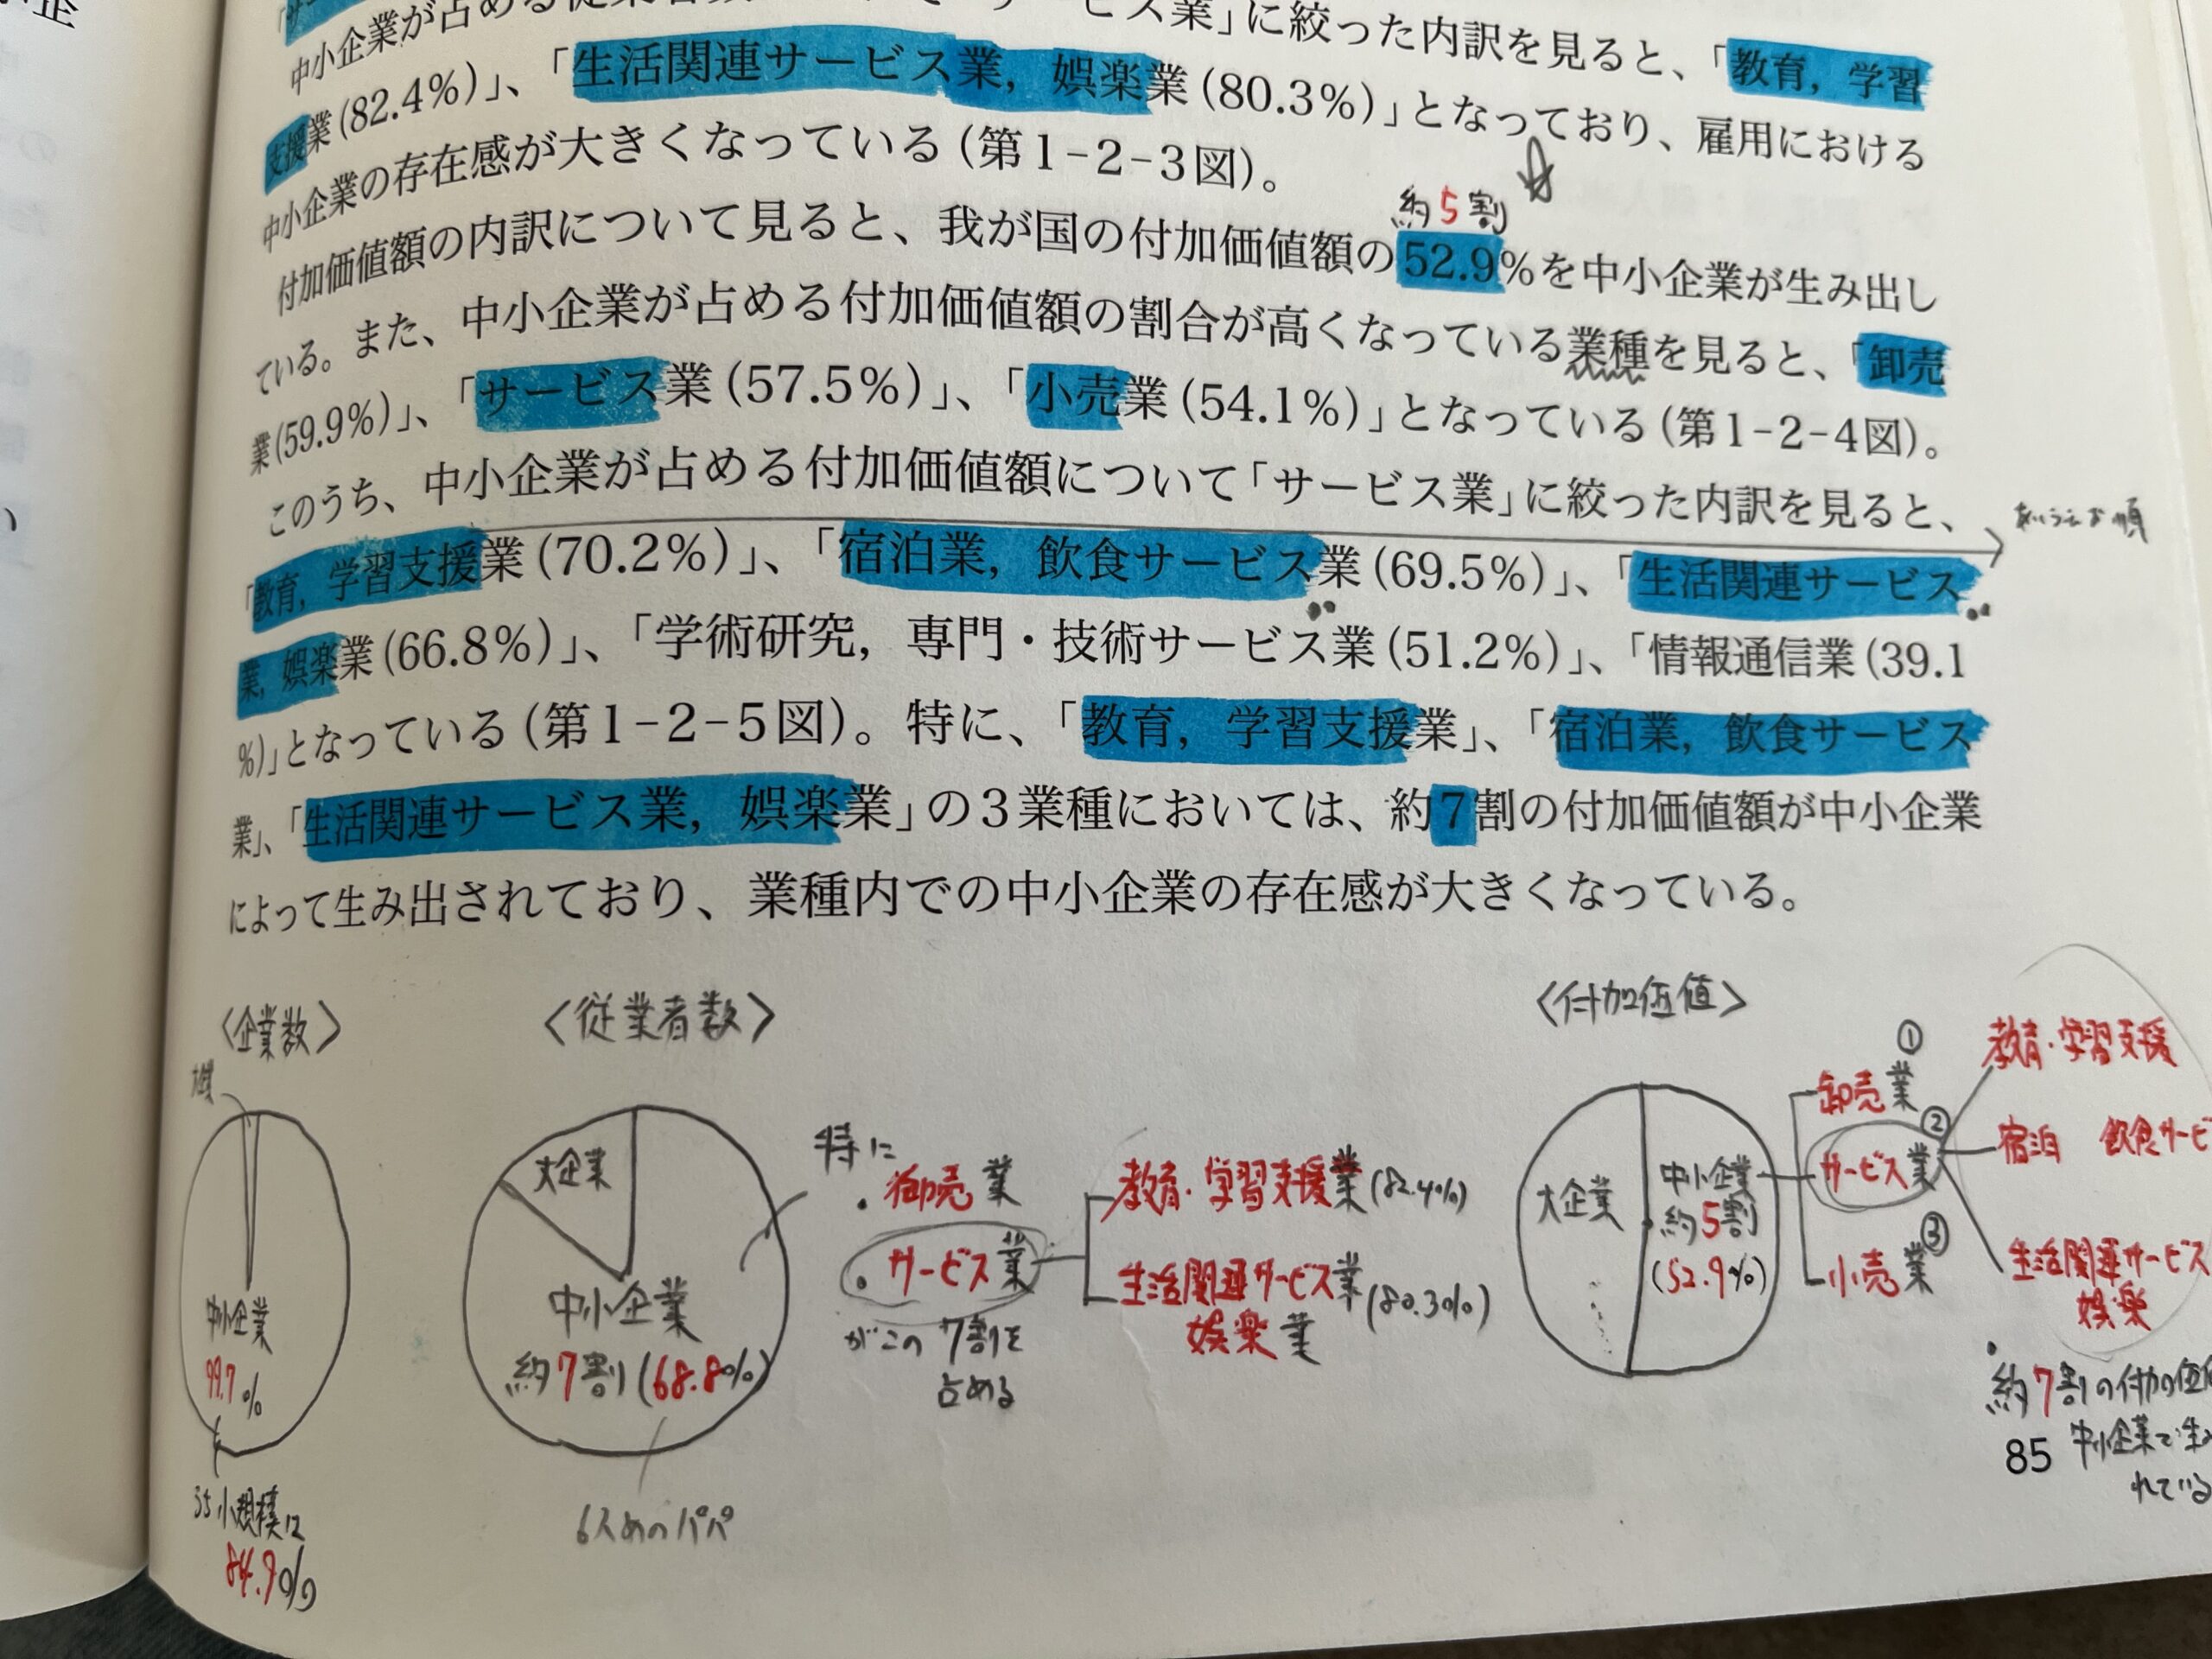 中小企業が占める従業者数
サービス業」に絞った内訳を見ると、「教育，学習
支援業(82.4%)」、「生活関連サービス業，娯楽業(80.3%)」となっており、雇用における
中小企業の存在感が大きくなっている(第1-2-3図)。
約5割
付加価値額の内訳について見ると、我が国の付加価値額の52.9%を中小企業が生み出し
ている。また、中小企業が占める付加価値額の割合が高くなっている業種を見ると、「卸売
業(59.9%)」、「サービス業(57.5%)」、「小売業(54.1%)」となっている(第1-2-4図)。
このうち、中小企業が占める付加価値額について「サービス業」に絞った内訳を見ると、
あいうえお順
「教育，学習支援業(70.2%)」、「宿泊業，飲食サービス業(69.5%)」、「生活関連サービス
業，娯楽業(66.8%)」、「学術研究，専門・技術サービス業(51.2%)」、「情報通信業(39.1
%)」となっている(第1-2-5図)。特に、「教育，学習支援業」、「宿泊業，飲食サービス
業」、「生活関連サービス業，娯楽業」の3業種においては、約7割の付加価値額が中小企業
によって生み出されており、業種内での中小企業の存在感が大きくなっている。
〈企業数〉
中小企業
99.7%
小規模は
84.9%
〈従業者数〉
大企業
中小企業
約7割(68.8%)
6人めのパパ
特に
・御売業
・サービス業
がこの7割を
占める
教育・学習支援業(82.4%)
生活関連サービス業(80.3%)
娯楽業
〈付加価値〉
大企業
中小企業
約5割
(52.9%)
①
卸売業
②
サービス業
③
小売業
教育・学習支援
宿泊 飲食サービ
生活関連サービス
娯楽
約7割の付加価値
中小企業で生
れている
85